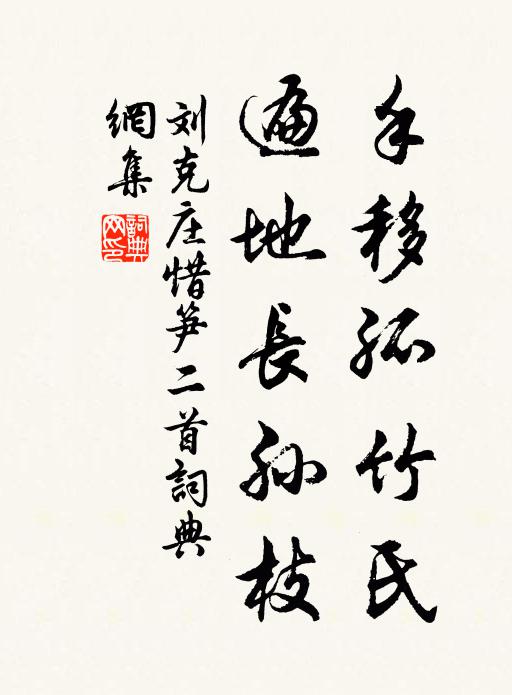 手移孤竹氏
遍地長孙枝
刘克庄惜笋二首詞典
網集
詞典网印